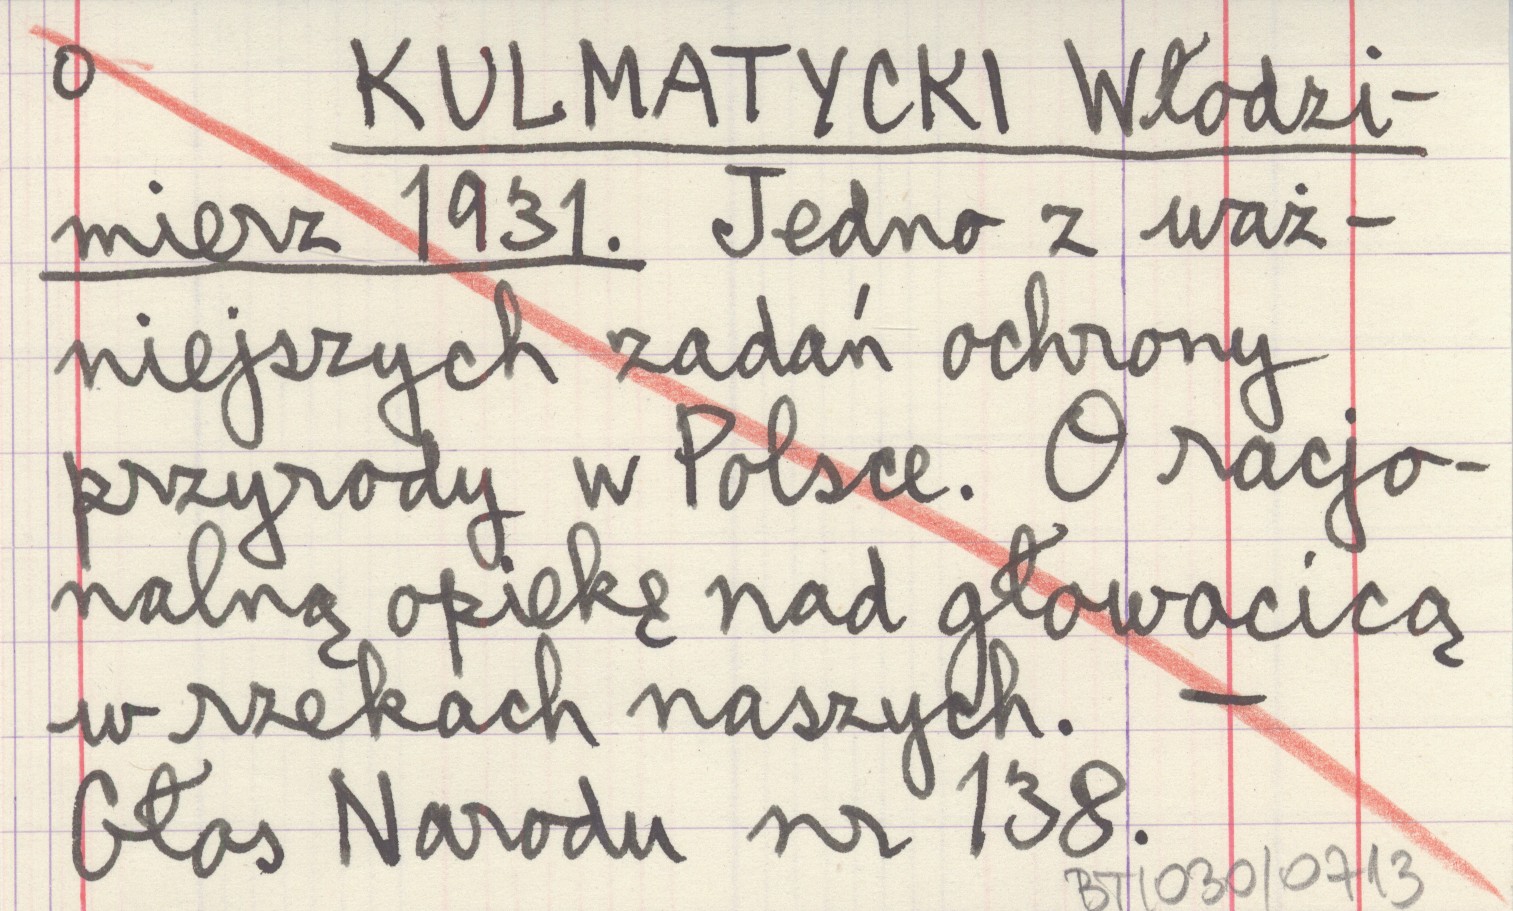 o KULMATYCKI Włodzi-
mierz 1931. Jedno z waż-
niejszych zadań ochrony
przyrody w Polsce. O racjo-
nalną opiekę nad głowacicą
w rzekach naszych. —
Głos Narodu nr 138.
BT/030/0713